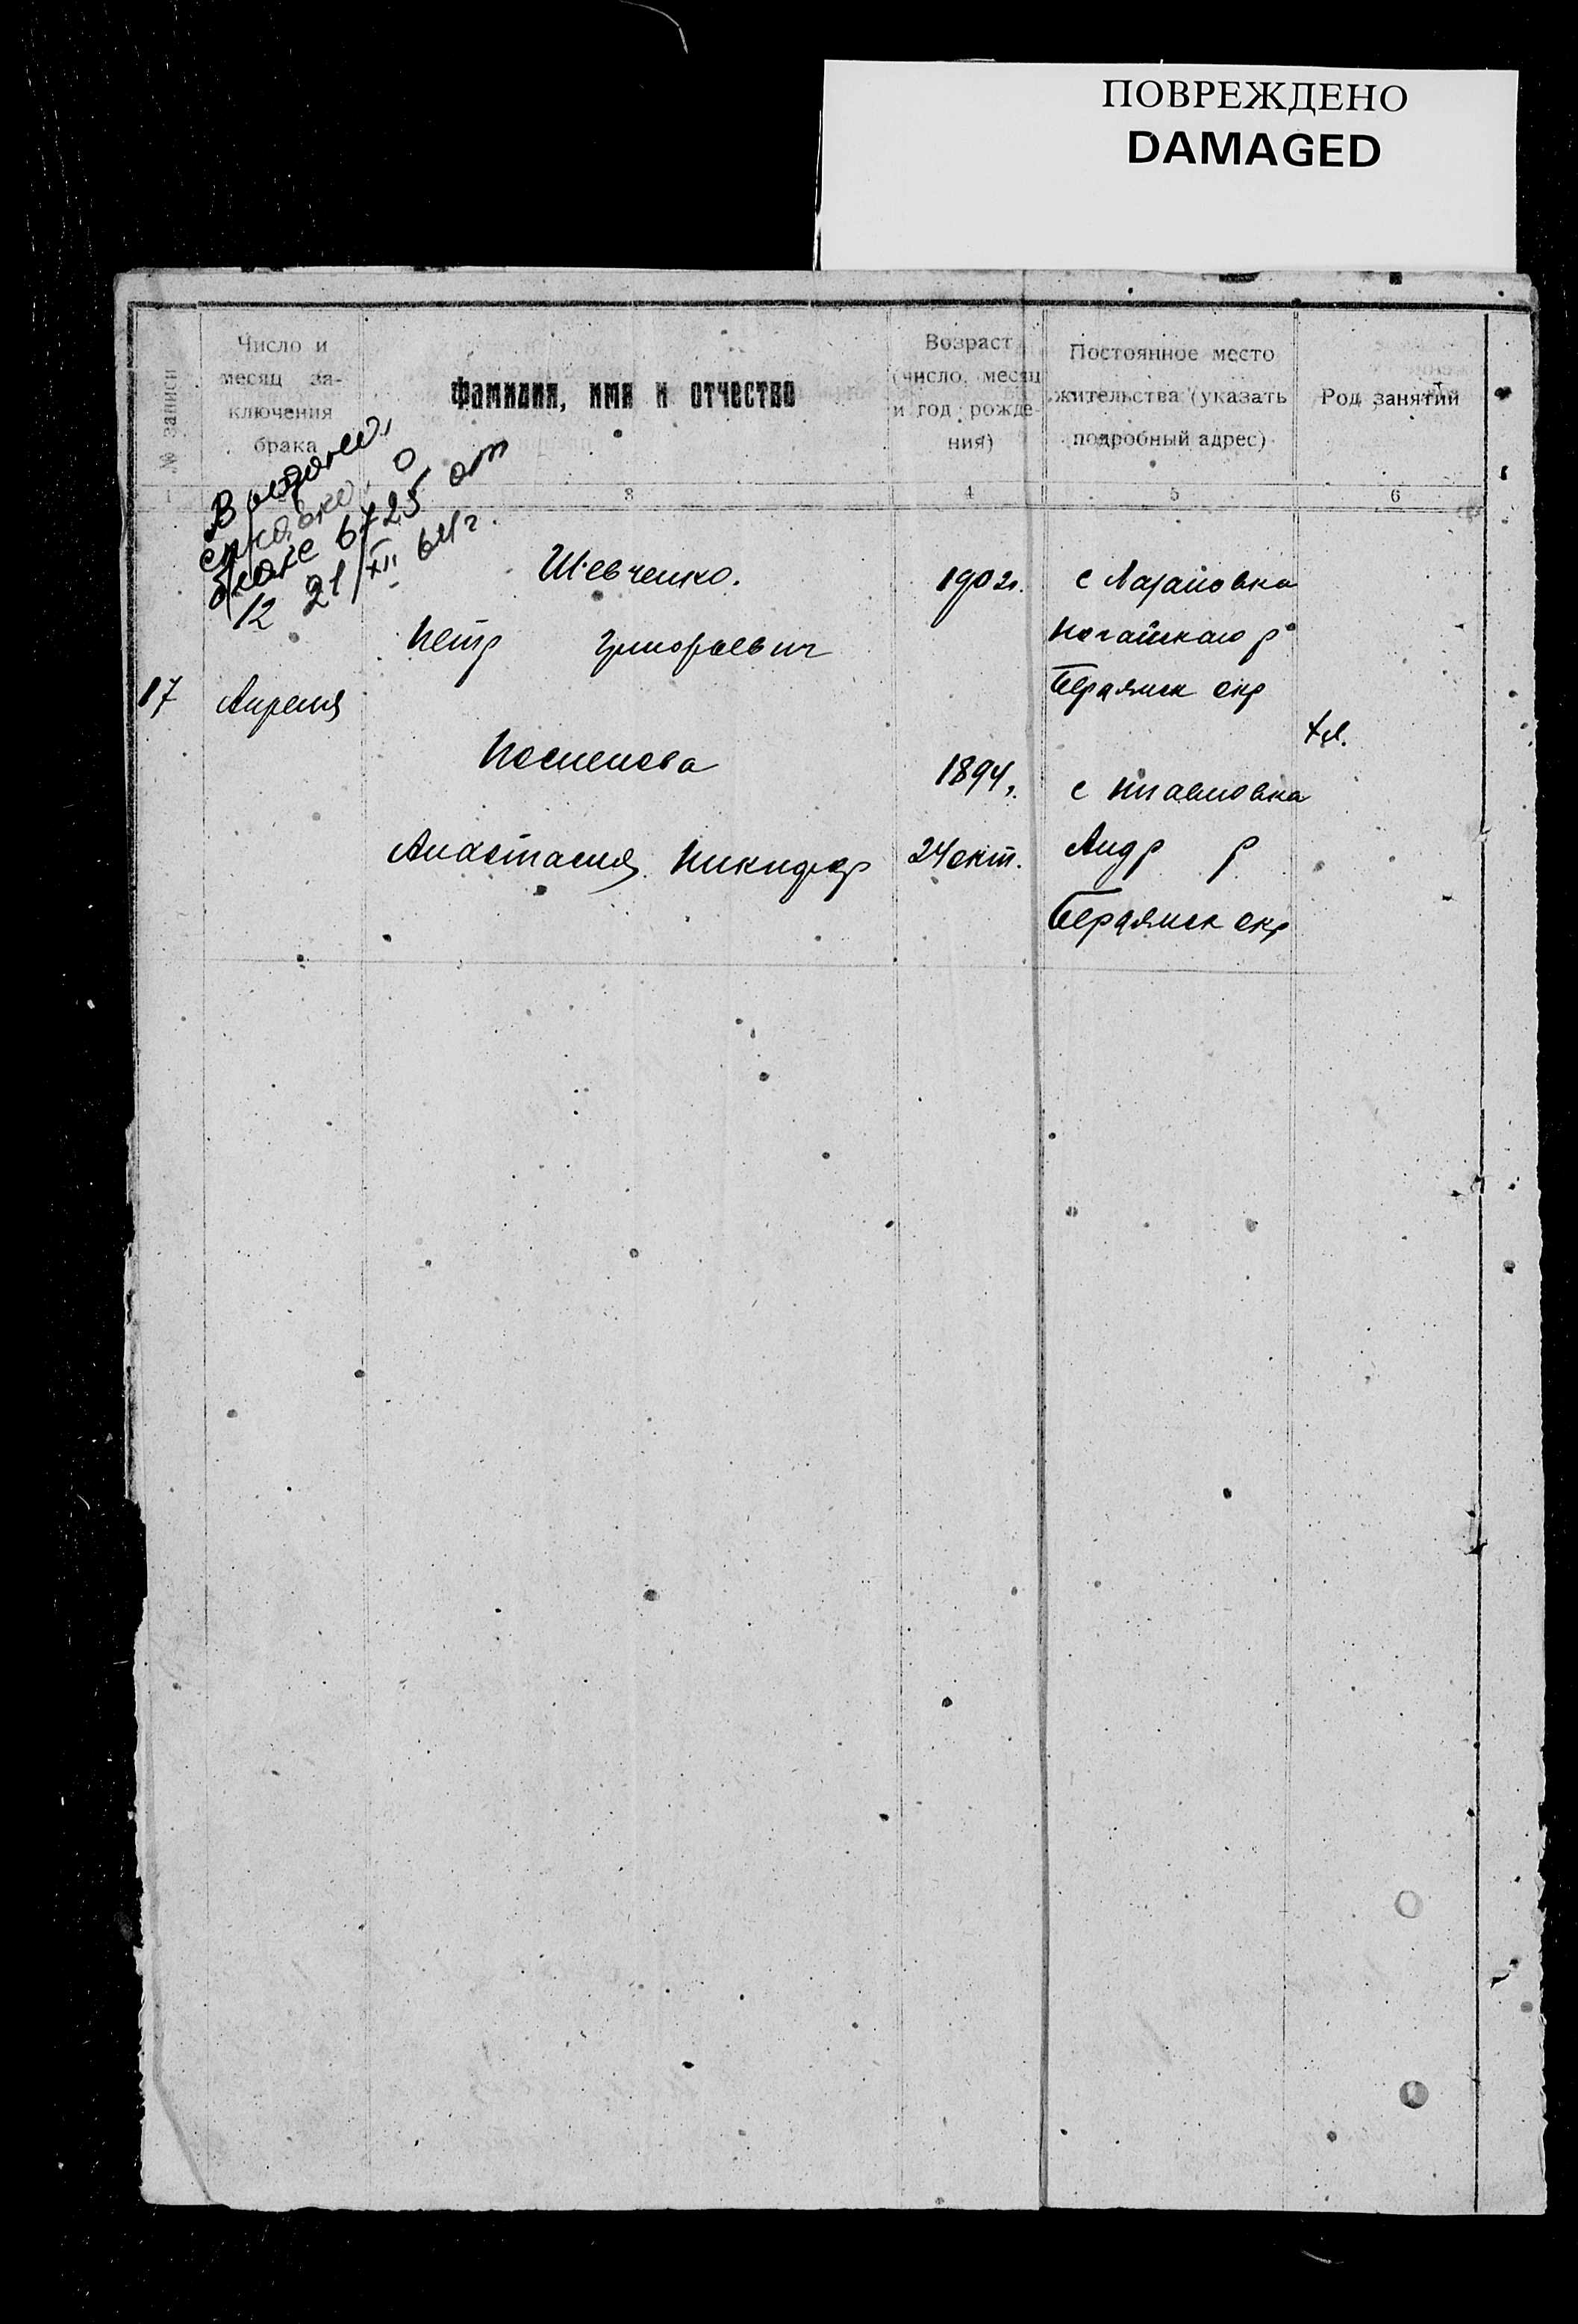 ПОВРЕЖДЕНО
DAMAGED
№ записи
Число и
месяц за-
ключения
брака
Фамилия, имя и отчество
Возраст
(число, месяц
и год рожде-
ния)
Постоянное место
жительства (указать
подробный адрес)
Род занятий
1
3
4
5
6
Выдана
справка о
браке 6425 от
12 21/XII 64 г.
Шевченко.
1902г.
Петр Григорьевич
Ногайского р
17
Апреля
Бердянск окр
хл.
1894,
с
Анастасия Никифор
24 окт.
Андр р
Бердянск окр